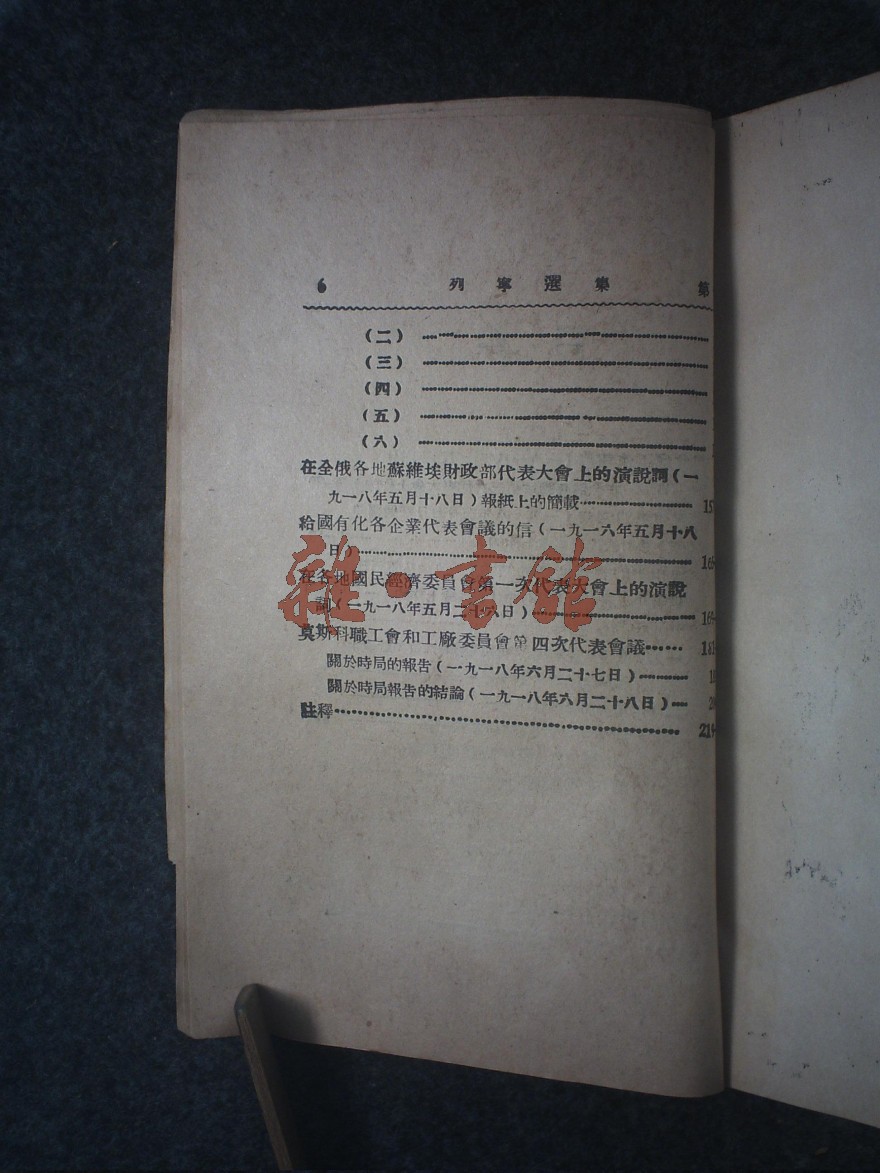 6 列寧選集 第
(二)
(三)
(四)
(五)
(六)
在全俄各地蘇維埃財政部代表大會上的演說詞(一
九一八年五月十八日)報紙上的簡載 15
給國有化各企業代表會議的信(一九一六年五月十八
日) 165
在各地國民經濟委員會第一次代表大會上的演說
詞(一九一八年五月二十六日) 169
莫斯科職工會和工廠委員會第四次代表會議 181
關於時局的報告(一九一八年六月二十七日) 18
關於時局報告的結論(一九一八年六月二十八日) 20
註釋 219
雜·書館